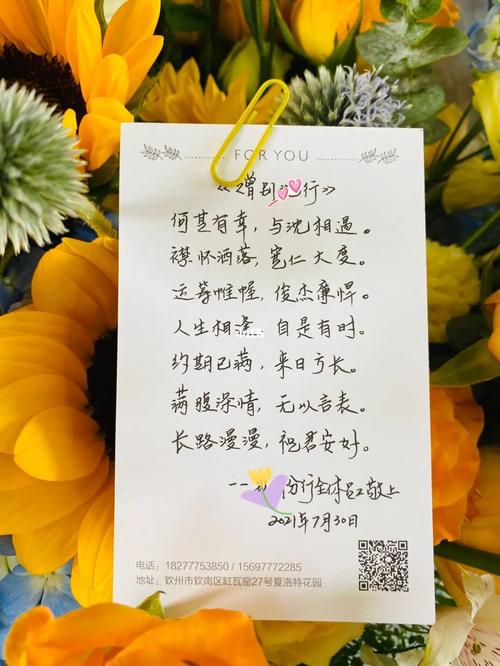 FOR YOU
《赠别 行》
何其有幸，与沈相遇。
襟怀洒落，宽仁大度。
运筹帷幄，俊杰廉悍。
人生相逢，自是有时。
约期已满，来日方长。
满腹深情，无以言表。
长路漫漫，祝君安好。
份行全体员工敬上
2021年7月30日
电话：18277753850 / 15697772285
地址：钦州市钦南区缸瓦窑27号夏洛特花园